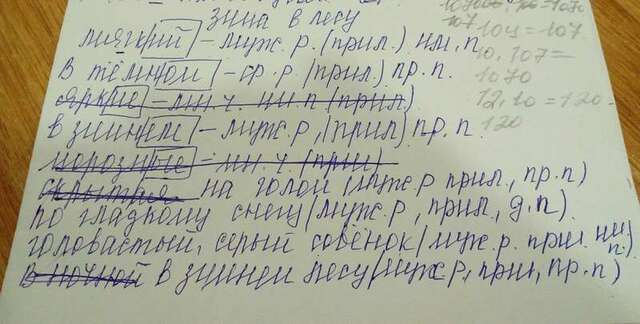 зима в лесу
мягкий – муж. р. (прил.) им. п.
в тёмном – ср. р. (прил) пр. п.
яркие – мн. ч. им. п (прил)
в зимнем – муж. р, (прил) пр. п.
морозные – мн. ч. (прил)
на голой (муж. р прил., пр. п)
по гладкому снегу (муж. р, прил, д. п).
головастый, серый совёнок (муж. р. прил. им. п.)
в ночной в зимнем лесу (муж р, прил, пр. п)
107
104 = 107
10.107 =
1070
12.10 = 120
120